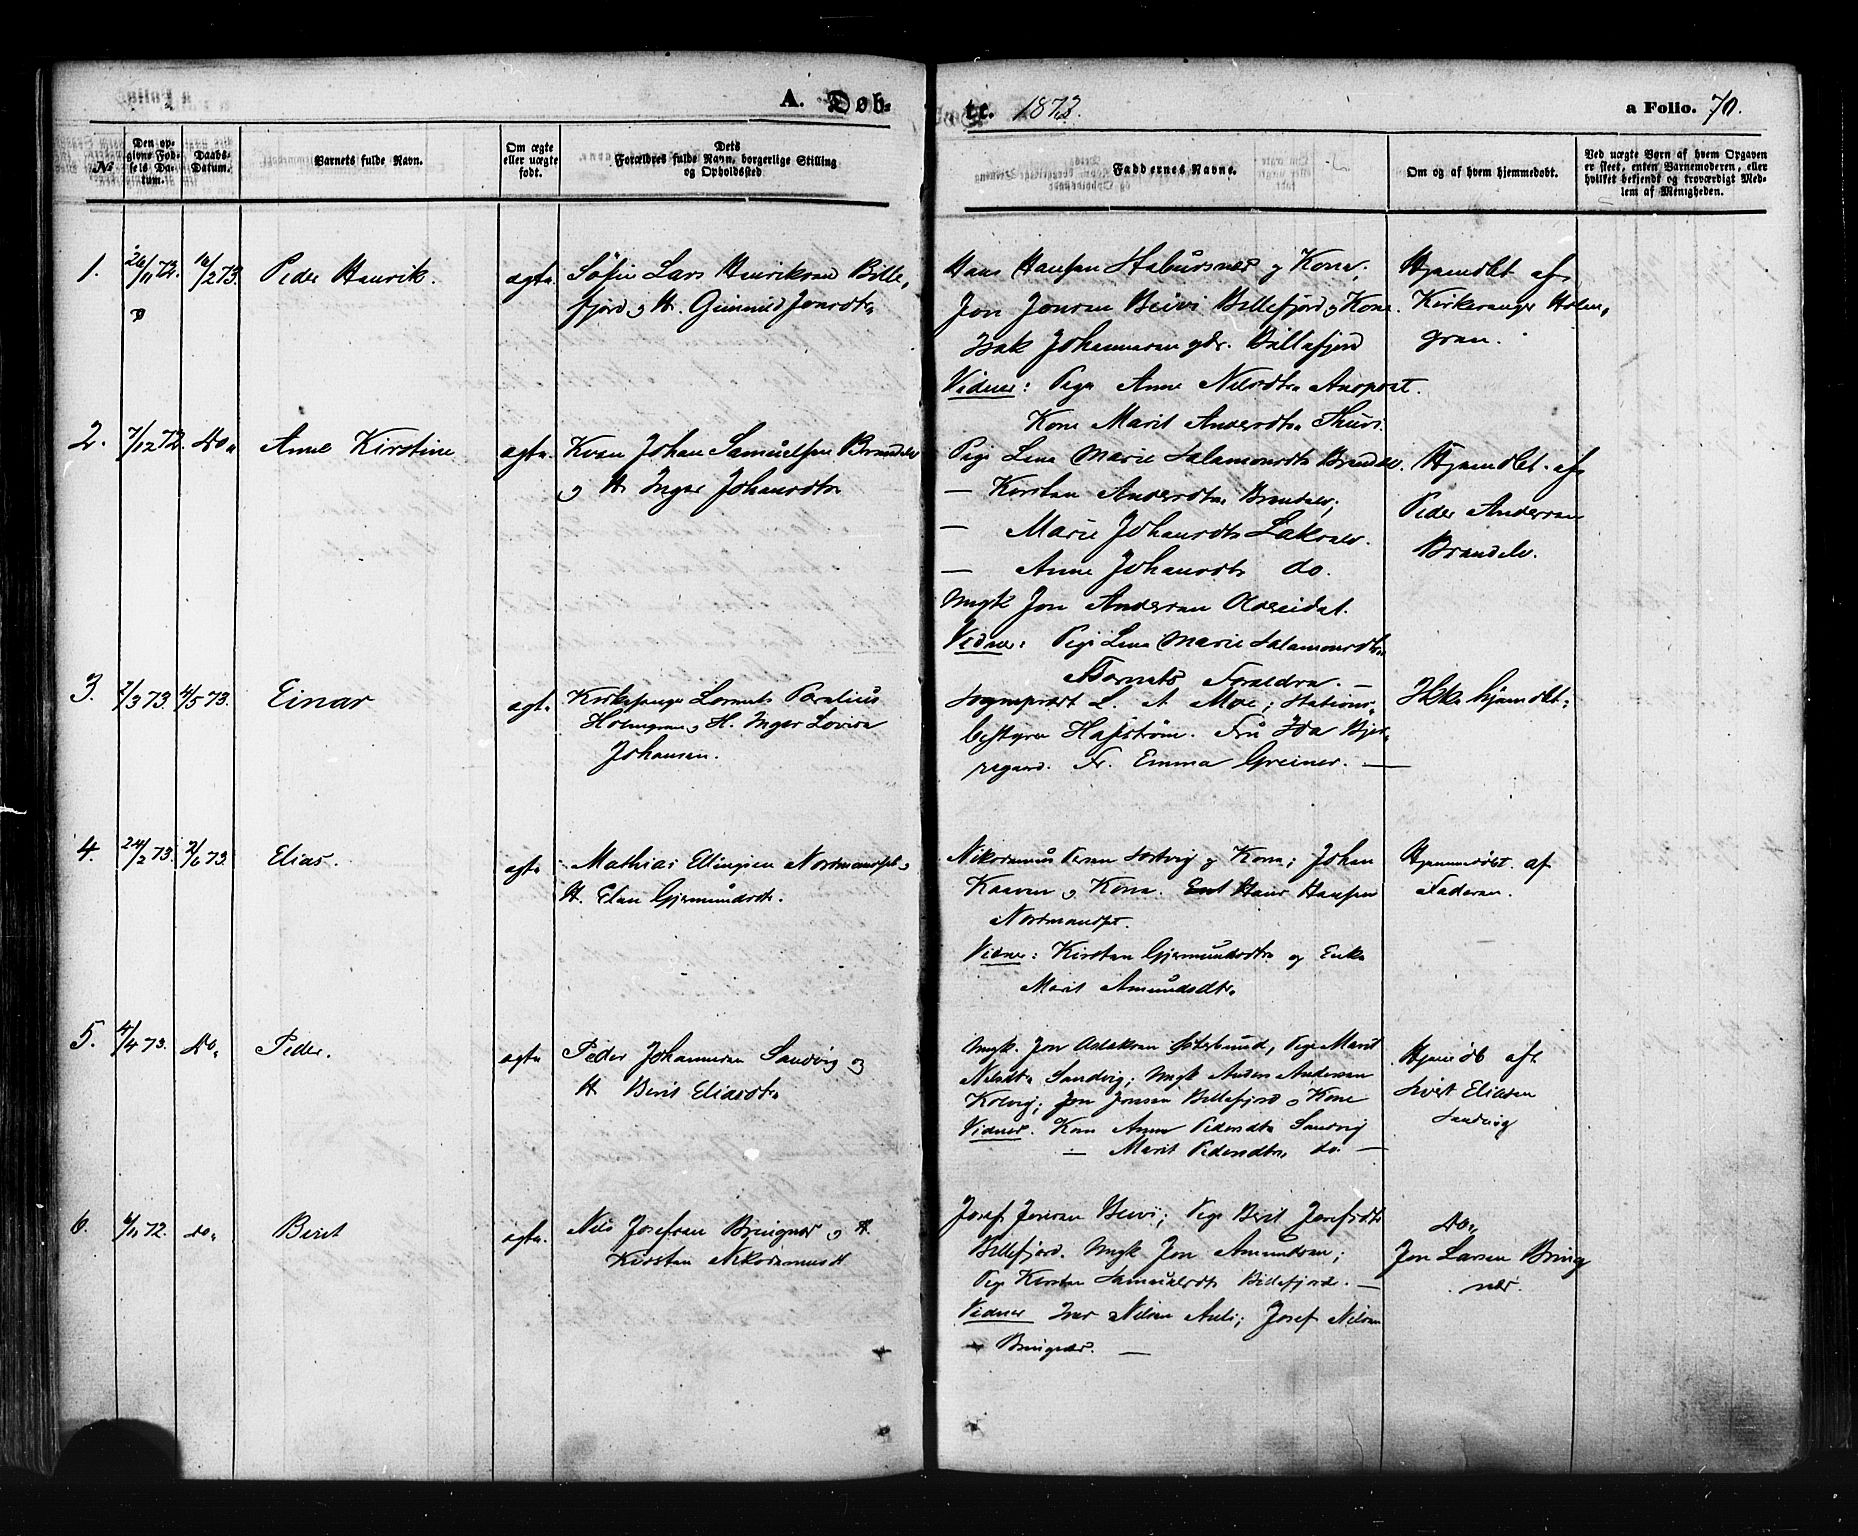 A. Døb-
te. 1873.
a Folio. 70.
№
Den op-
givne Fød-
sels Da-
tum.
Daabs-
Datum.
Barnets fulde Navn.
Om ægte
eller uægte
født.
Dets
Forældres fulde Navn, borgerlige Stilling
og Opholdssted.
Faddernes Navne.
Om og af hvem hjemmedøbt.
Ved uægte Børn af hvem Opgaven
er skeet, enten Barnemoderen, eller
hvilket bekjendt og troværdigt Med-
lem af Menigheden.
1. 26/11 72. 16/2 73. Peder Henrik. ægte
Søfin Lars Henriksen Bille-
fjord og H. Gunnild Jonsdtr
Hans Hansen Stabursnes og Kone,
Jon Jonsen Beivi Billefjord og Kone.
Isak Johannesen gdr. Billefjord
Vidner: Pige Anne Nilsdtr
Kone Marit Andersdtr
Hjemdbt af
Kirkesanger Holm-
gren.
2. 7/12 72. Do. Anne Kirstine ægte.
Kvæn Johan Samuelsen Brændelv
og H. Inger Johansdtr
Pige Lena Marie Salamonsdtr Brændelv.
— Kirsten Andersdtr Brændelv,
— Marie Johansdtr Lakselv.
— Anne Johansdtr do.
Ungk Jon Andersen
Vidner: Pige Lena Marie Salamonsdtr
Barnets Forældre. —
Hjemdbt. af
Peder Andersen
Brændelv.
3. 2/3 73. 4/5 73. Einar ægte
Kirkesanger Lornts Paralius
Holmgren og H. Inger Lovisa
Johansen.
Sogneprest L. A Moe; Stations-
bestyrer Hafstrøm. Fru Ida Bjer-
regaard. Fr. Emma Greiner. —
Ikke hjemdbt.
4. 24/2 73. 2/6 73. Elias. ægte
Mathias Ellingsen Normandset og
H. Elen Gjermundsdtr.
Nikodemus Persen Sortvig og Kone; Johan
Kaaven og Kone. Enk Hans Hansen
Normandset.
Vidner: Kirsten Gjermundsdtr og Enke
Marit Amundsdtr
Hjemmedøbt. af
Faderen.
5. 4/4 73. Do. Peder. ægte
Peder Johannesen Sandvig og
H Berit Eliasdtr
Ungk. Jon Aslaksen Østerbund, Pige Marit
Nilsdtr Sandvig; Ungk Anders Andersen
Kolvig; Jon Jonsen Billefjord og Kone
Vidner. Kone Anne Pedersdtr Sandvig
— Marit Pedersdtr do. —
Hjemdb af
Sivert Eliasen
Sandvig
6. 6/11 72. Do. Berit ægte.
Nils Josefsen Bringnes og H.
Kirsten Nikodemusdt
Josef Jonsen Beivi; Pige Berit Josefsdtr
Billefjord. Ungk Jon Amundsen;
Pige Kirsten Samuelsdtr Billefjord. —
Vidner Iver Nilsen Auli; Josef Nilsen
Bringnes. —
Do.
Jon Larsen Bring
nes.